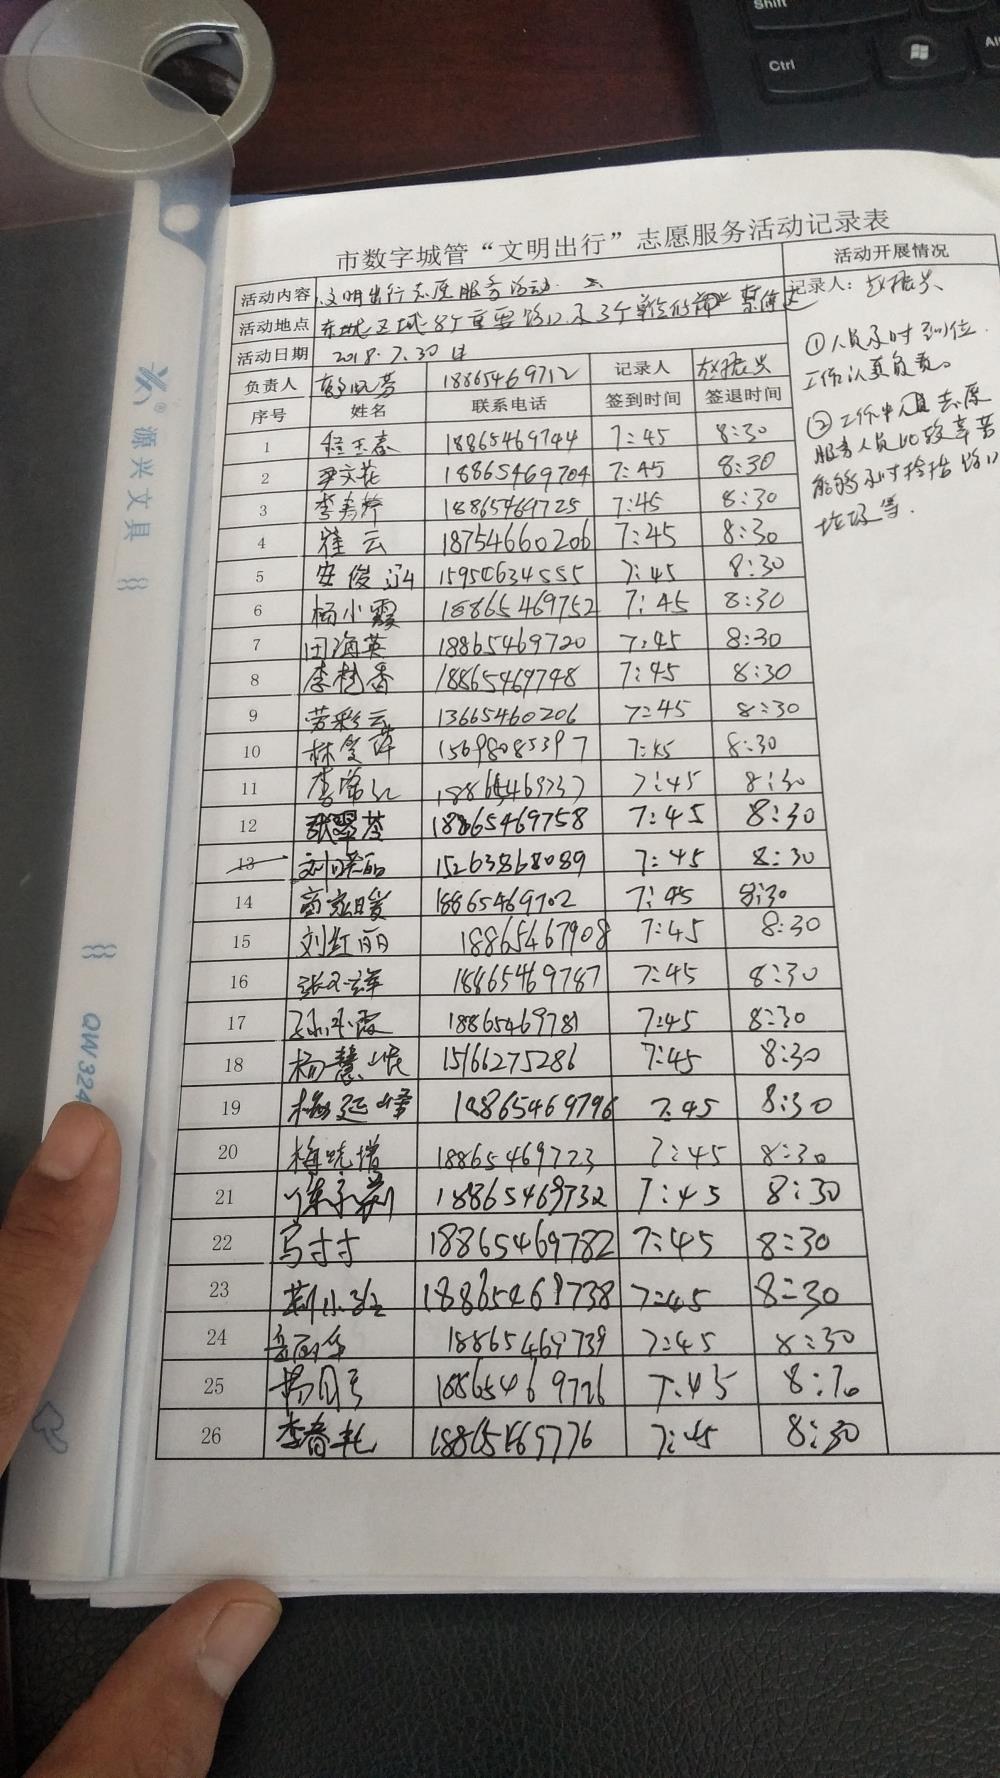 Shift
Ctrl
Alt
源兴文具
QW324
市数字城管“文明出行”志愿服务活动记录表
活动内容 文明出行志愿服务活动. 活动开展情况
活动地点 东城区域8个重要路口及3个单位 记录人：赵振兴
活动日期 2018.7.30日
负责人 18865469712 记录人 赵振兴
序号 姓名 联系电话 签到时间 签退时间
①人员及时到位.
工作认真负责。
②工作中 志愿
服务人员比较辛苦
能够及时捡拾路口
垃圾等.
1 程玉春 18865469744 7:45 8:30
2 尹文花 18865469704 7:45 8:30
3 李秀婷 18865469725 7:45 8:30
4 崔云 18754660206 7:45 8:30
5 安俊 15954634555 7:45 8:30
6 杨小霞 18865469752 7:45 8:30
7 田海英 18865469720 7:45 8:30
8 李桂香 18865469748 7:45 8:30
9 劳彩云 13665460206 7:45 8:30
10 林雪萍 15698085397 7:45 8:30
11 李 18865469737 7:45 8:30
12 张翠苓 18865469758 7:45 8:30
13 刘晓丽 15263868089 7:45 8:30
14 18865469702 7:45 8:30
15 刘红丽 18865467908 7:45 8:30
16 张 18865469787 7:45 8:30
17 孙小霞 18865469781 7:45 8:30
18 杨慧 15166275286 7:45 8:30
19 梅延峰 18865469796 7:45 8:30
20 梅 增 18865469723 7:45 8:30
21 18865469732 7:45 8:30
22 马寸寸 18865469782 7:45 8:30
23 荆小 18865469738 7:45 8:30
24 岳丽华 18865469739 7:45 8:30
25 杨 18865469726 7:45 8:30
26 李春 18865469776 7:45 8:30